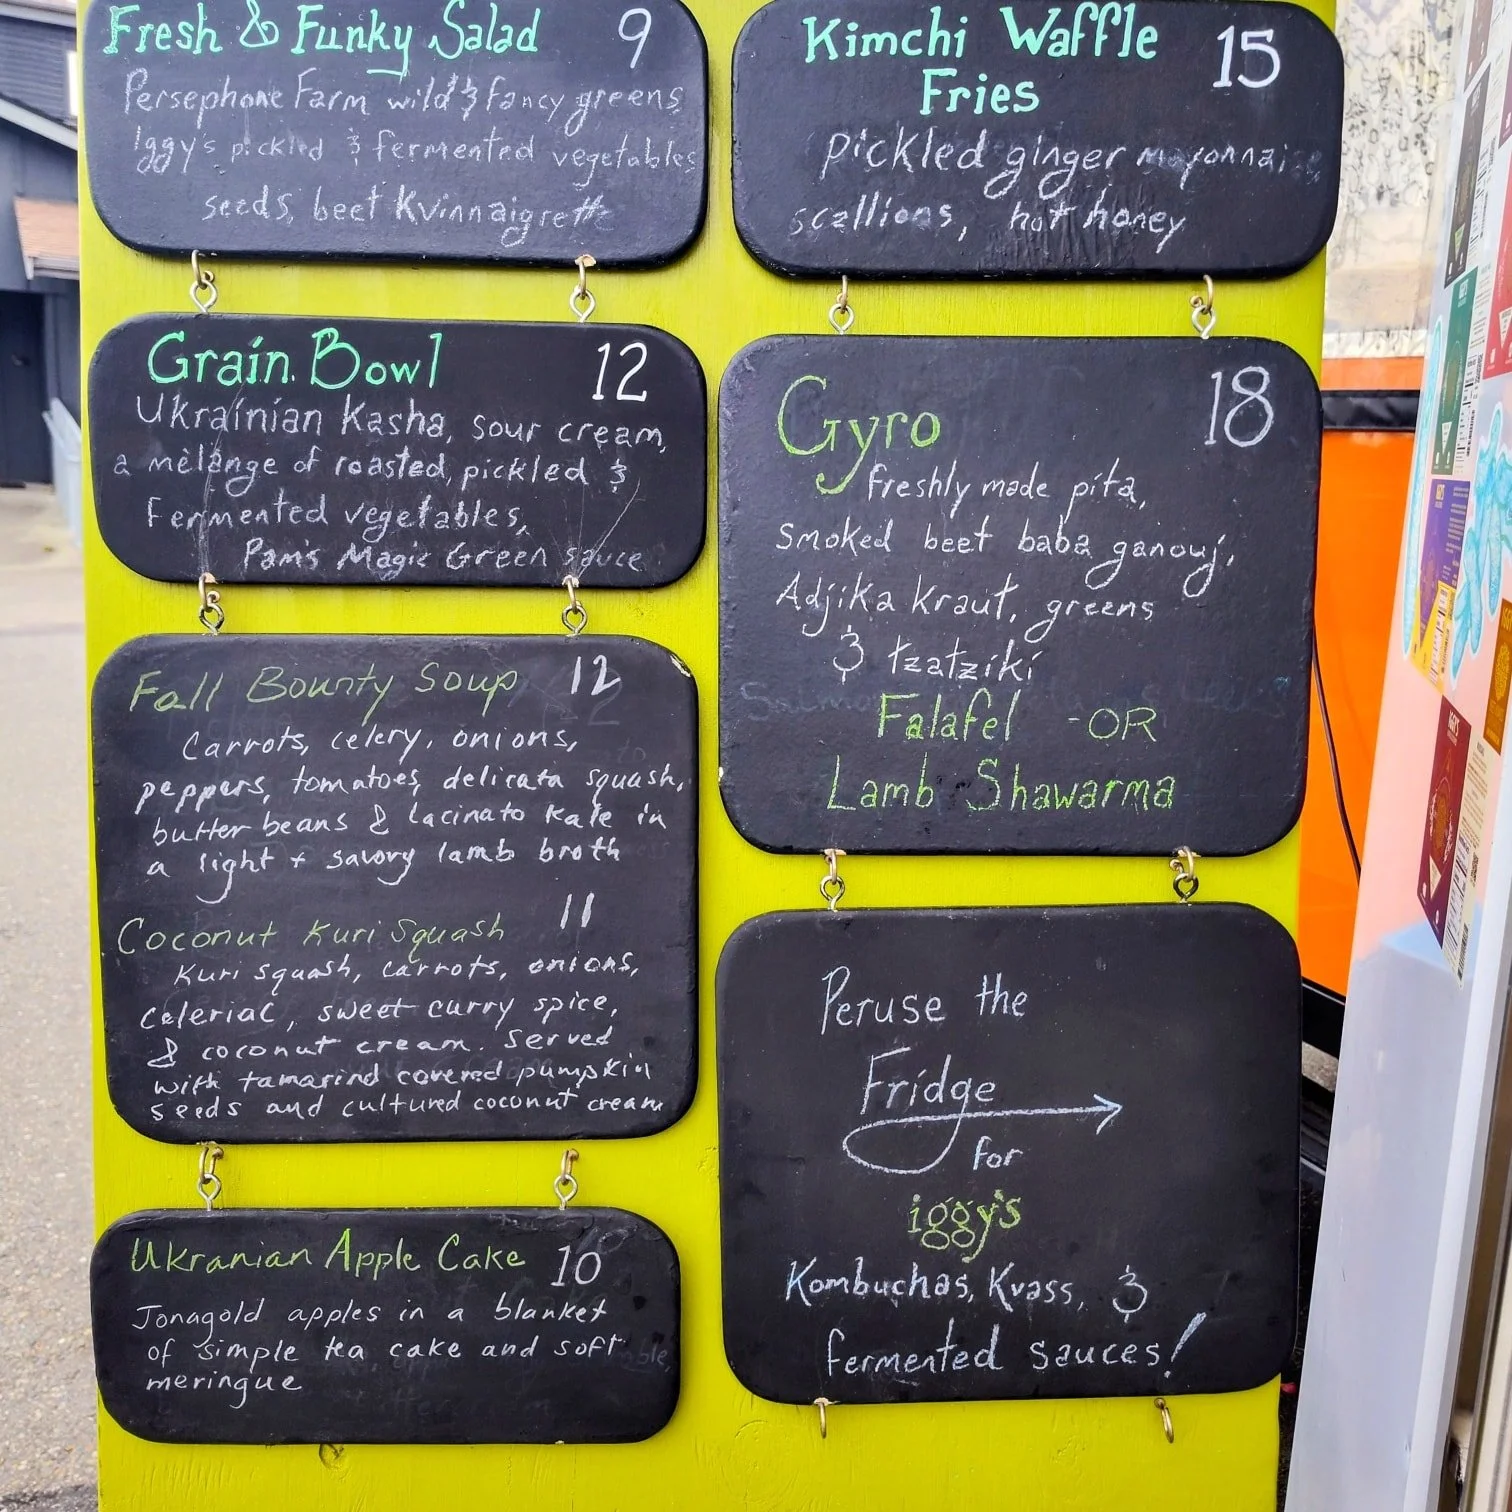 Fresh & Funky Salad 9
Persephone Farm wild & fancy greens
Iggy's pickled & fermented vegetables
seeds, beet Kvinnaigrette
Grain Bowl 12
Ukrainian Kasha, sour cream,
a mèlange of roasted, pickled &
Fermented vegetables,
Pam's Magic Green sauce
Fall Bounty Soup 12
Carrots, celery, onions,
peppers, tomatoes, delicata squash,
butter beans & lacinato kale in
a light + savory lamb broth
Coconut Kuri Squash 11
Kuri squash, carrots, onions,
celeriac, sweet curry spice,
& coconut cream. Served
with tamarind covered pumpkin
seeds and cultured coconut cream
Ukranian Apple Cake 10
Jonagold apples in a blanket
of simple tea cake and soft
meringue
Kimchi Waffle 15
Fries
pickled ginger mayonnaise,
scallions, hot honey
Gyro 18
freshly made pita,
smoked beet baba ganouj,
Adjika kraut, greens
& tzatziki
Falafel -OR
Lamb Shawarma
Peruse the
Fridge
for
iggy's
Kombuchas, Kvass, &
fermented sauces!